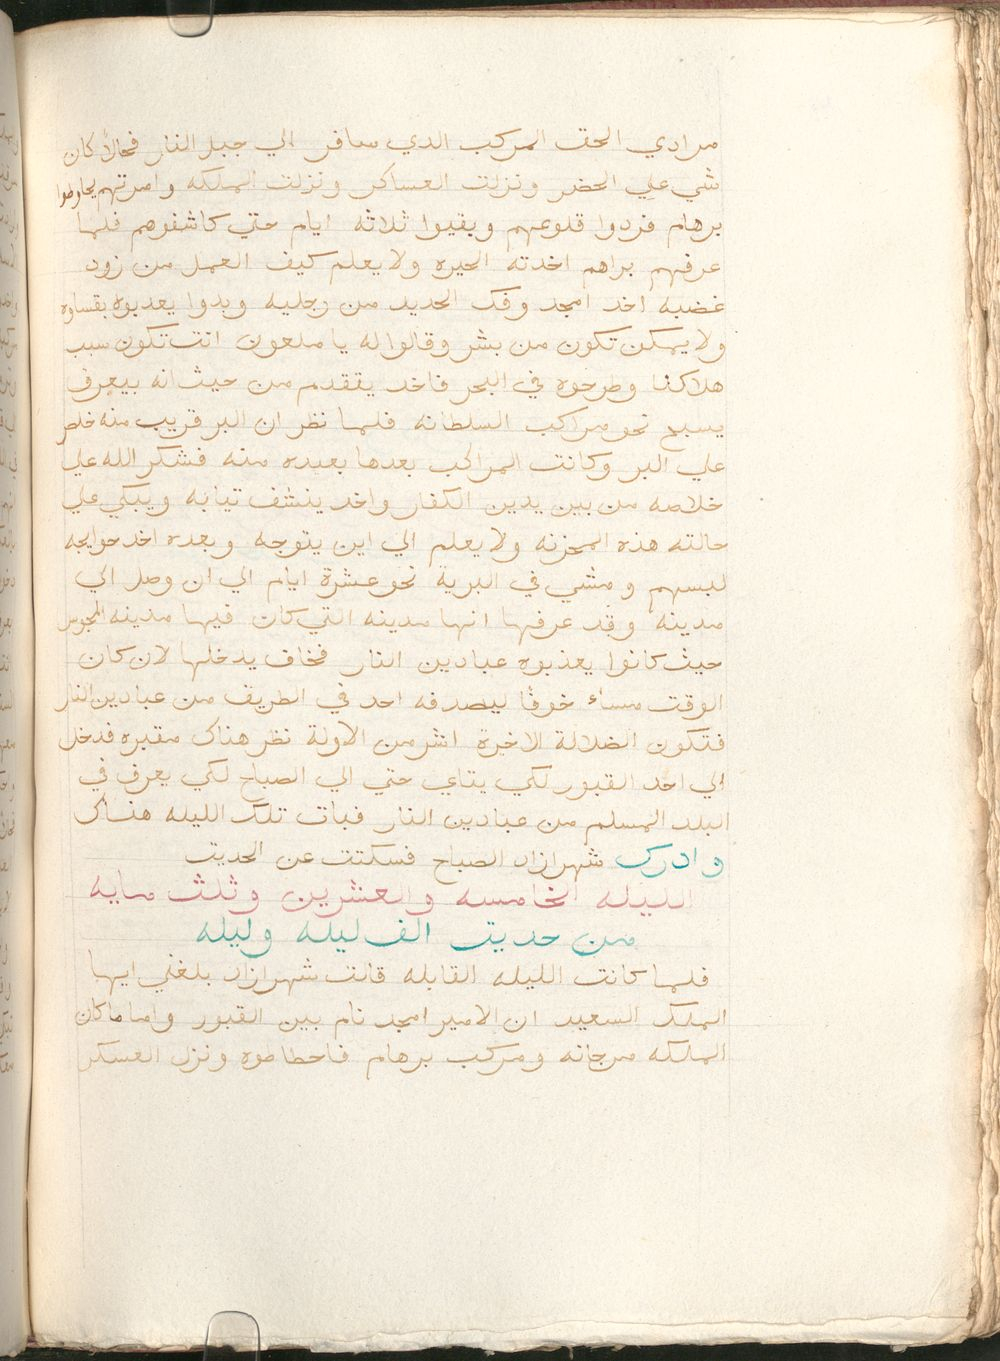 مرادي الحق المركب الدي سافر الي جبل النار فحالاً كان
شي علي الحضر ونزلت العساكر ونزلت الملكه وامرتهم يحاوطوا
برهام فردوا قلوعهم وبقيوا ثلاثه ايام حتي كاشفوهم فلما
عرفهم براهم اخدته الحيره ولا يعلم كيف العمل من زود
غضبه اخد امجد وفك الحديد من رجليه وبدوا يعدبوه بقساوه
ولا يمكن تكون من بشر وقالوا له يا ملعون انت تكون سبب
هلاكنا وطرحوه في البحر فاخد يتقدم من حيث انه بيعرف
يسبح نحو مراكب السلطانه فلما نظر ان البر قريب منه خلص
علي البر وكانت المراكب بعدها بعيده منه فشكر الله علي
خلاصه من بين يدين الكفار واخد ينشف تيابه ويبكي علي
حالته هذه المحزنه ولا يعلم الي اين يتوجه وبعده اخد حوايجه
لبسهم ومشي في البرية نحو عشرة ايام الي ان وصل الي
مدينه وقد عرفها انها مدينه التي كان فيها مدينه المجوس
حيث كانوا يعذبوه عبادين النار فخاف يدخلها لان كان
الوقت مساء خوفا ليصدفه احد في الطريق من عبادين النار
فتكون الضلالة الاخيرة اشر من الاولة نظر هناك مقبره فدخل
الي احد القبور لكي يتاي حتي الي الصباح لكي يعرف في
البلد المسلم من عبادين النار فبات تلك الليله هناك
وادرك شهرازاد الصباح فسكتت عن الحديت
الليله الخامسه والعشرين وثلث مايه
من حديت الف ليله وليله
فلما كانت الليله القابله قالت شهرازاد بلغني ايها
الملك السعيد ان الامير امجد نام بين القبور واما ما كان
الملكه مرجانه ومركب برهام فاحطاطوه ونزل العسكر